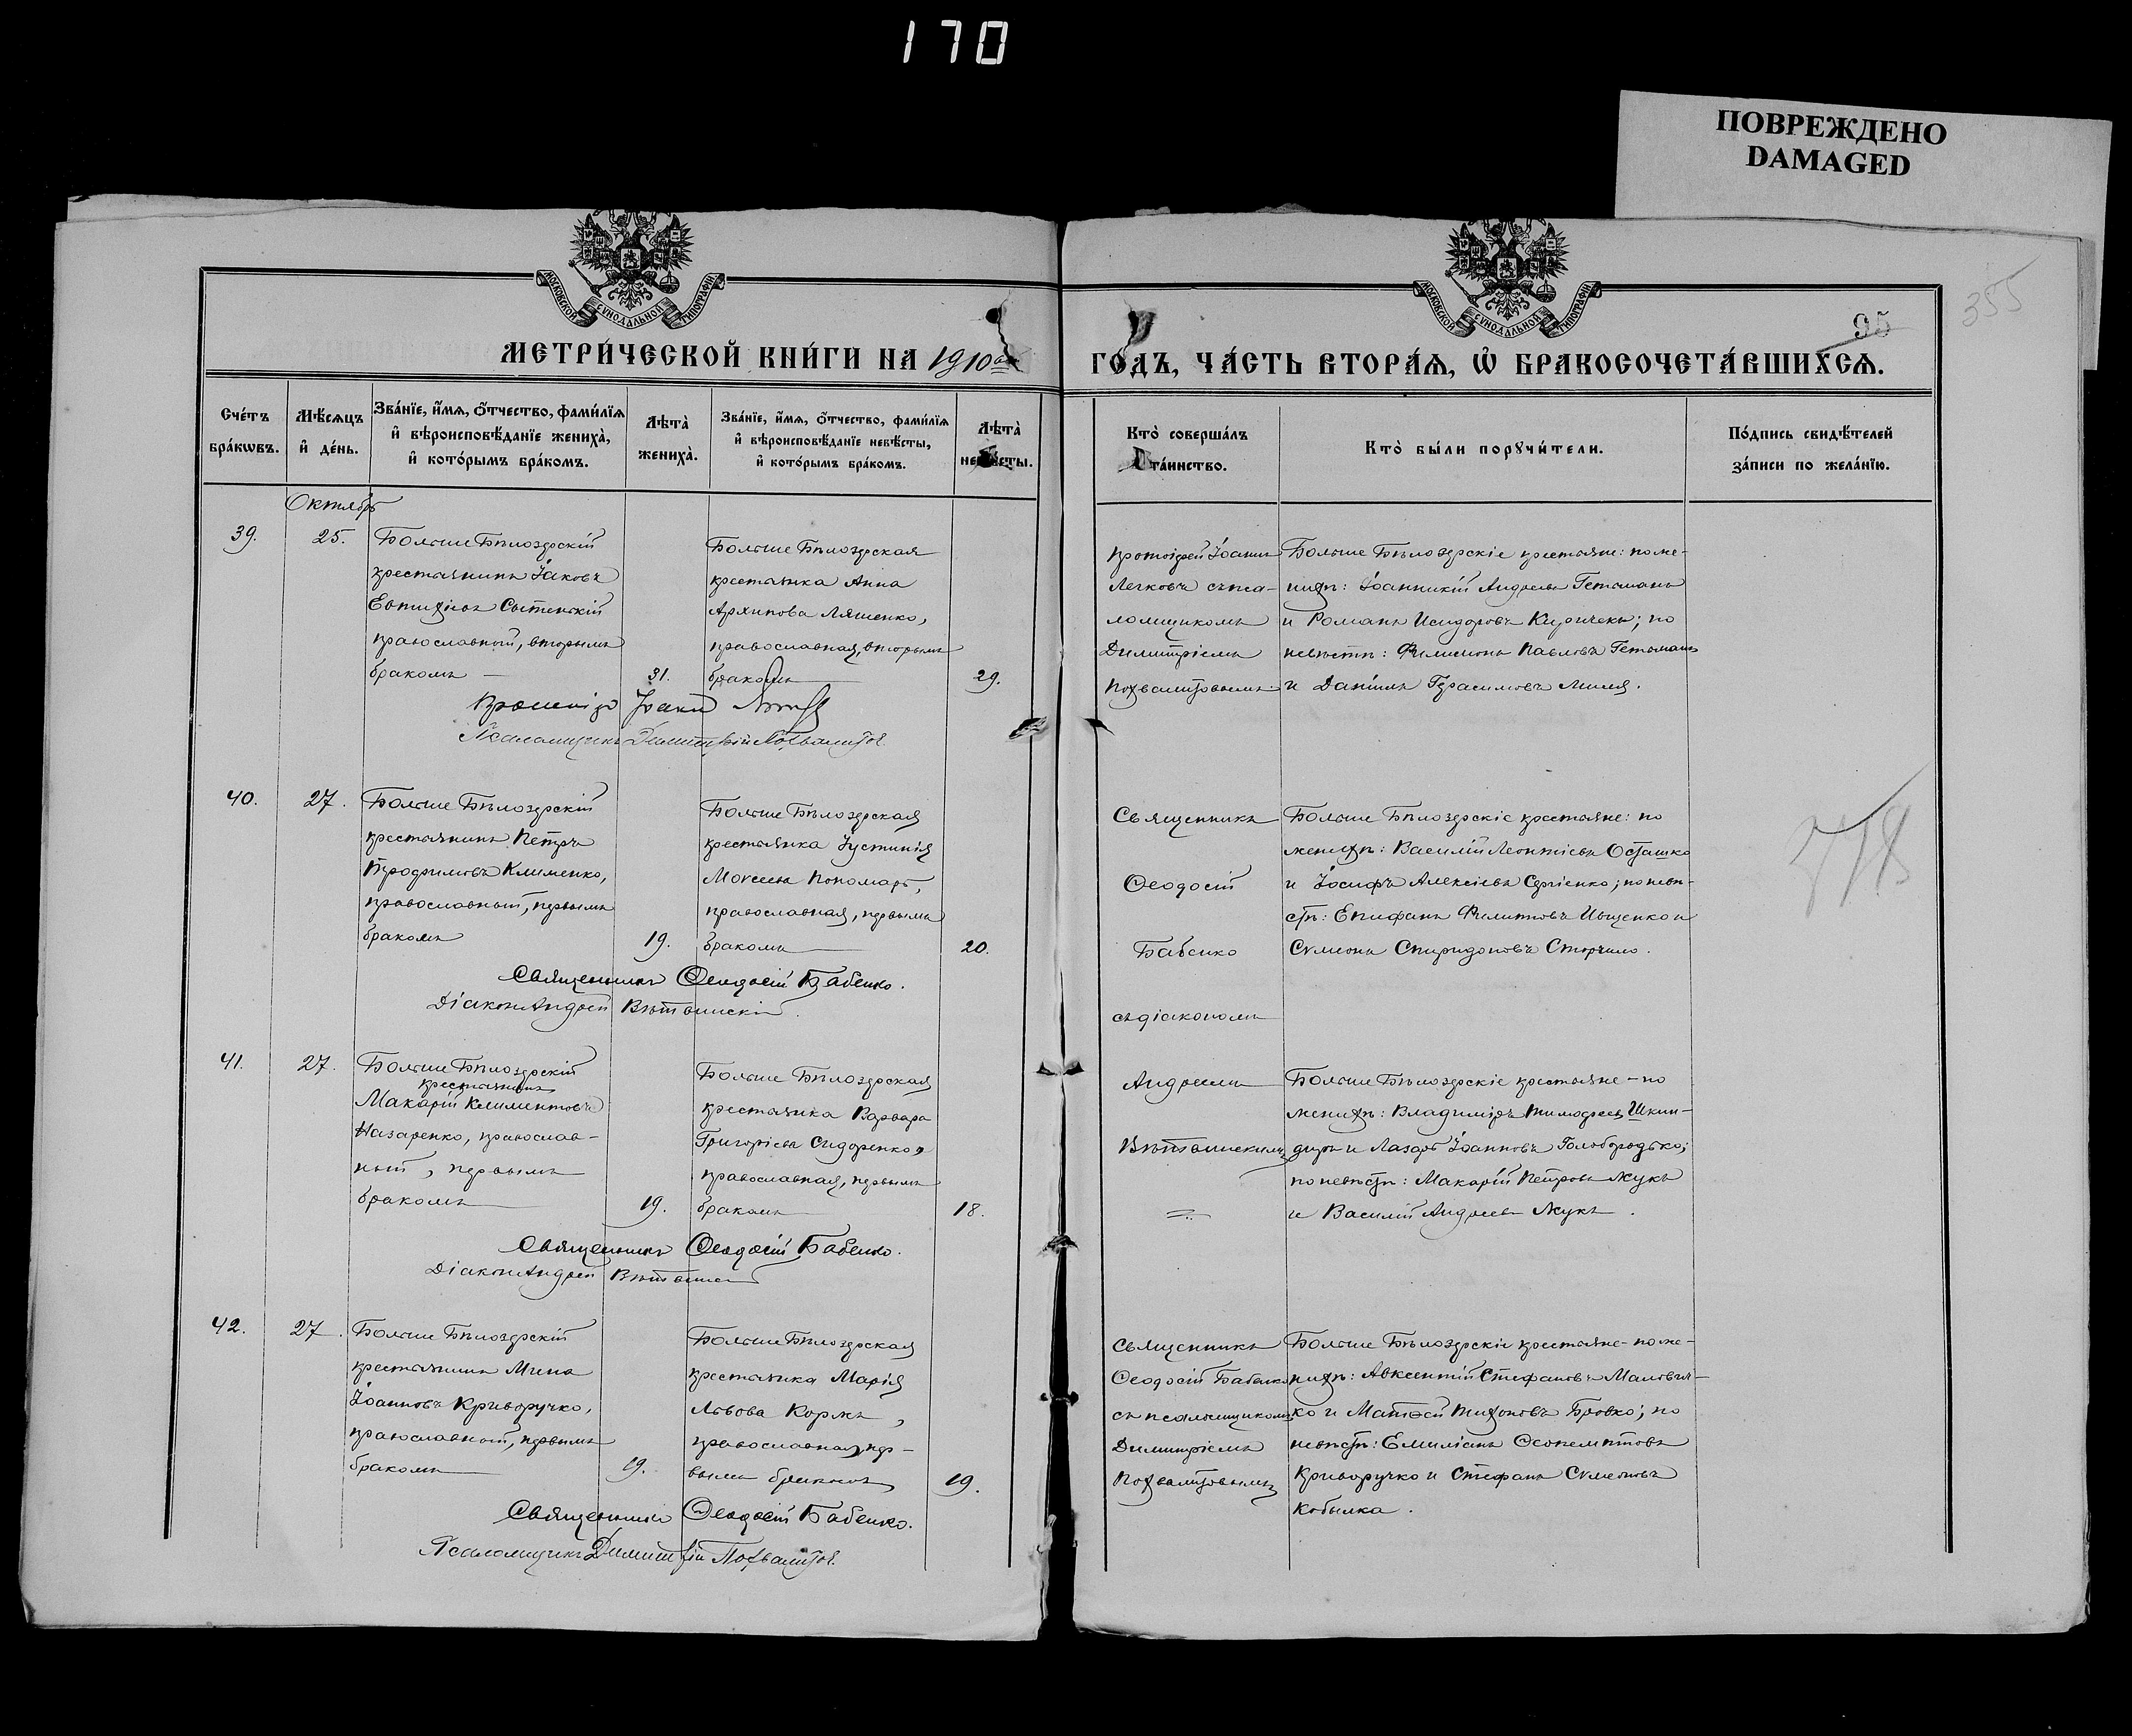 170
ПОВРЕЖДЕНО
DAMAGED
МОСКОВСКОЙ СѴНОДАЛЬНОЙ ТИПОГРАФІИ
МОСКОВСКОЙ СѴНОДАЛЬНОЙ ТИПОГРАФІИ
355
95
МЕТРИ́ЧЕСКОЙ КНИ́ГИ НА 1910
ГО́ДЪ, ЧА́СТЬ ВТОРА́Ѧ, Ѡ҆ БРАКОСОЧЕТА́ВШИХСѦ.
Сче́тъ
бра́кѡвъ.
Мѣ́сѧцъ
и҆ де́нь.
Зва́нїе, и҆́мѧ, ѻ҆́тчество, фами́лїѧ
и҆ вѣроисповѣ́данїе жениха̀,
и҆ кото́рымъ бра́комъ.
Лѣта̀
жениха̀.
Зва́нїе, и҆́мѧ, ѻ҆́тчество, фами́лїѧ
и҆ вѣроисповѣ́данїе невѣ́сты,
и҆ кото́рымъ бра́комъ.
Лѣта̀
невѣ́сты.
Кто̀ соверша́лъ
та́инство.
Кто̀ бы́ли порꙋчи́тели.
По́дпись свидѣ́телей
за́писи по жела́нїю.
Октябрь
39.
25.
Больше Бѣлозерскій
крестьянинъ Іаковъ
Евтихіевъ Сытенскій
православный, вторымъ
бракомъ
31.
Больше Бѣлозерская
крестьянка Анна
Архипова Ляшенко,
православная, вторымъ
бракомъ
29.
Протоіерей Іоаннъ
Легковъ съ пса-
ломщикомъ
Димитріемъ
Похвалитовымъ
Больше Бѣлозерскіе крестьяне: по же-
нихѣ: Іоанникій Андреевъ Гетьманъ
и Романъ Исидоровъ Киричекъ; по
невѣстѣ: Филимонъ Павловъ Гетьманъ
и Даніилъ Герасимовъ
Псаломщикъ Димитрій Похвалитовъ
40.
27.
Больше Бѣлозерскій
крестьянинъ Петръ
Трофимовъ Клименко,
православный, первымъ
бракомъ
19.
Больше Бѣлозерская
крестьянка Іустинія
Моѵсеева Пономарь,
православная, первымъ
бракомъ
20.
Священникъ
Ѳеодосій
Бабенко
съ діакономъ
Больше Бѣлозерскіе крестьяне: по
женихѣ: Василій Леонтіевъ Осташко
и Іосифъ Алексіевъ Сергіенко; по невѣ-
стѣ: Епифанъ Филипповъ Ищенко и
Сѵмеонъ Спиридоновъ Сторчило.
Священникъ Ѳеодосій Бабенко.
Діаконъ Андрей Вѣтвинскій.
41.
27.
Больше Бѣлозерскій
крестьянинъ
Макарій Климентовъ
Назаренко, православ-
ный, первымъ
бракомъ
19.
Больше Бѣлозерская
крестьянка Варвара
Григорьева Сидоренкова
православная, первымъ
бракомъ
18.
Андреемъ
Вѣтвинскимъ
Больше Бѣлозерскіе крестьяне - по
женихѣ: Владиміръ Тимофеевъ Шкин-
деръ и Лазарь Іоанновъ Голобородько;
по невѣстѣ: Макарій Петровъ Жукъ
и Василій Андреевъ Жукъ.
Священникъ Ѳеодосій Бабенко.
Діаконъ Андрей Вѣтвинскій
42.
27.
Больше Бѣлозерскій
крестьянинъ Мина
Іоанновъ Криворучко,
православный, первымъ
бракомъ
19.
Больше Бѣлозерская
крестьянка Марія
Львова Коржъ,
православная, пер-
вымъ бракомъ
19.
Священникъ
Ѳеодосій Бабенко
съ псаломщикомъ
Димитріемъ
Похвалитовымъ
Больше Бѣлозерскіе крестьяне - по же-
нихѣ: Авксентій Стефановъ Малович-
ко и Матѳей Тихоновъ Бровко; по
невѣстѣ: Емиліанъ Ѳеопемптовъ
Криворучко и Стефанъ Сѵмеоновъ
Кобылка.
Священникъ Ѳеодосій Бабенко.
Псаломщикъ Димитрій Похвалитовъ.